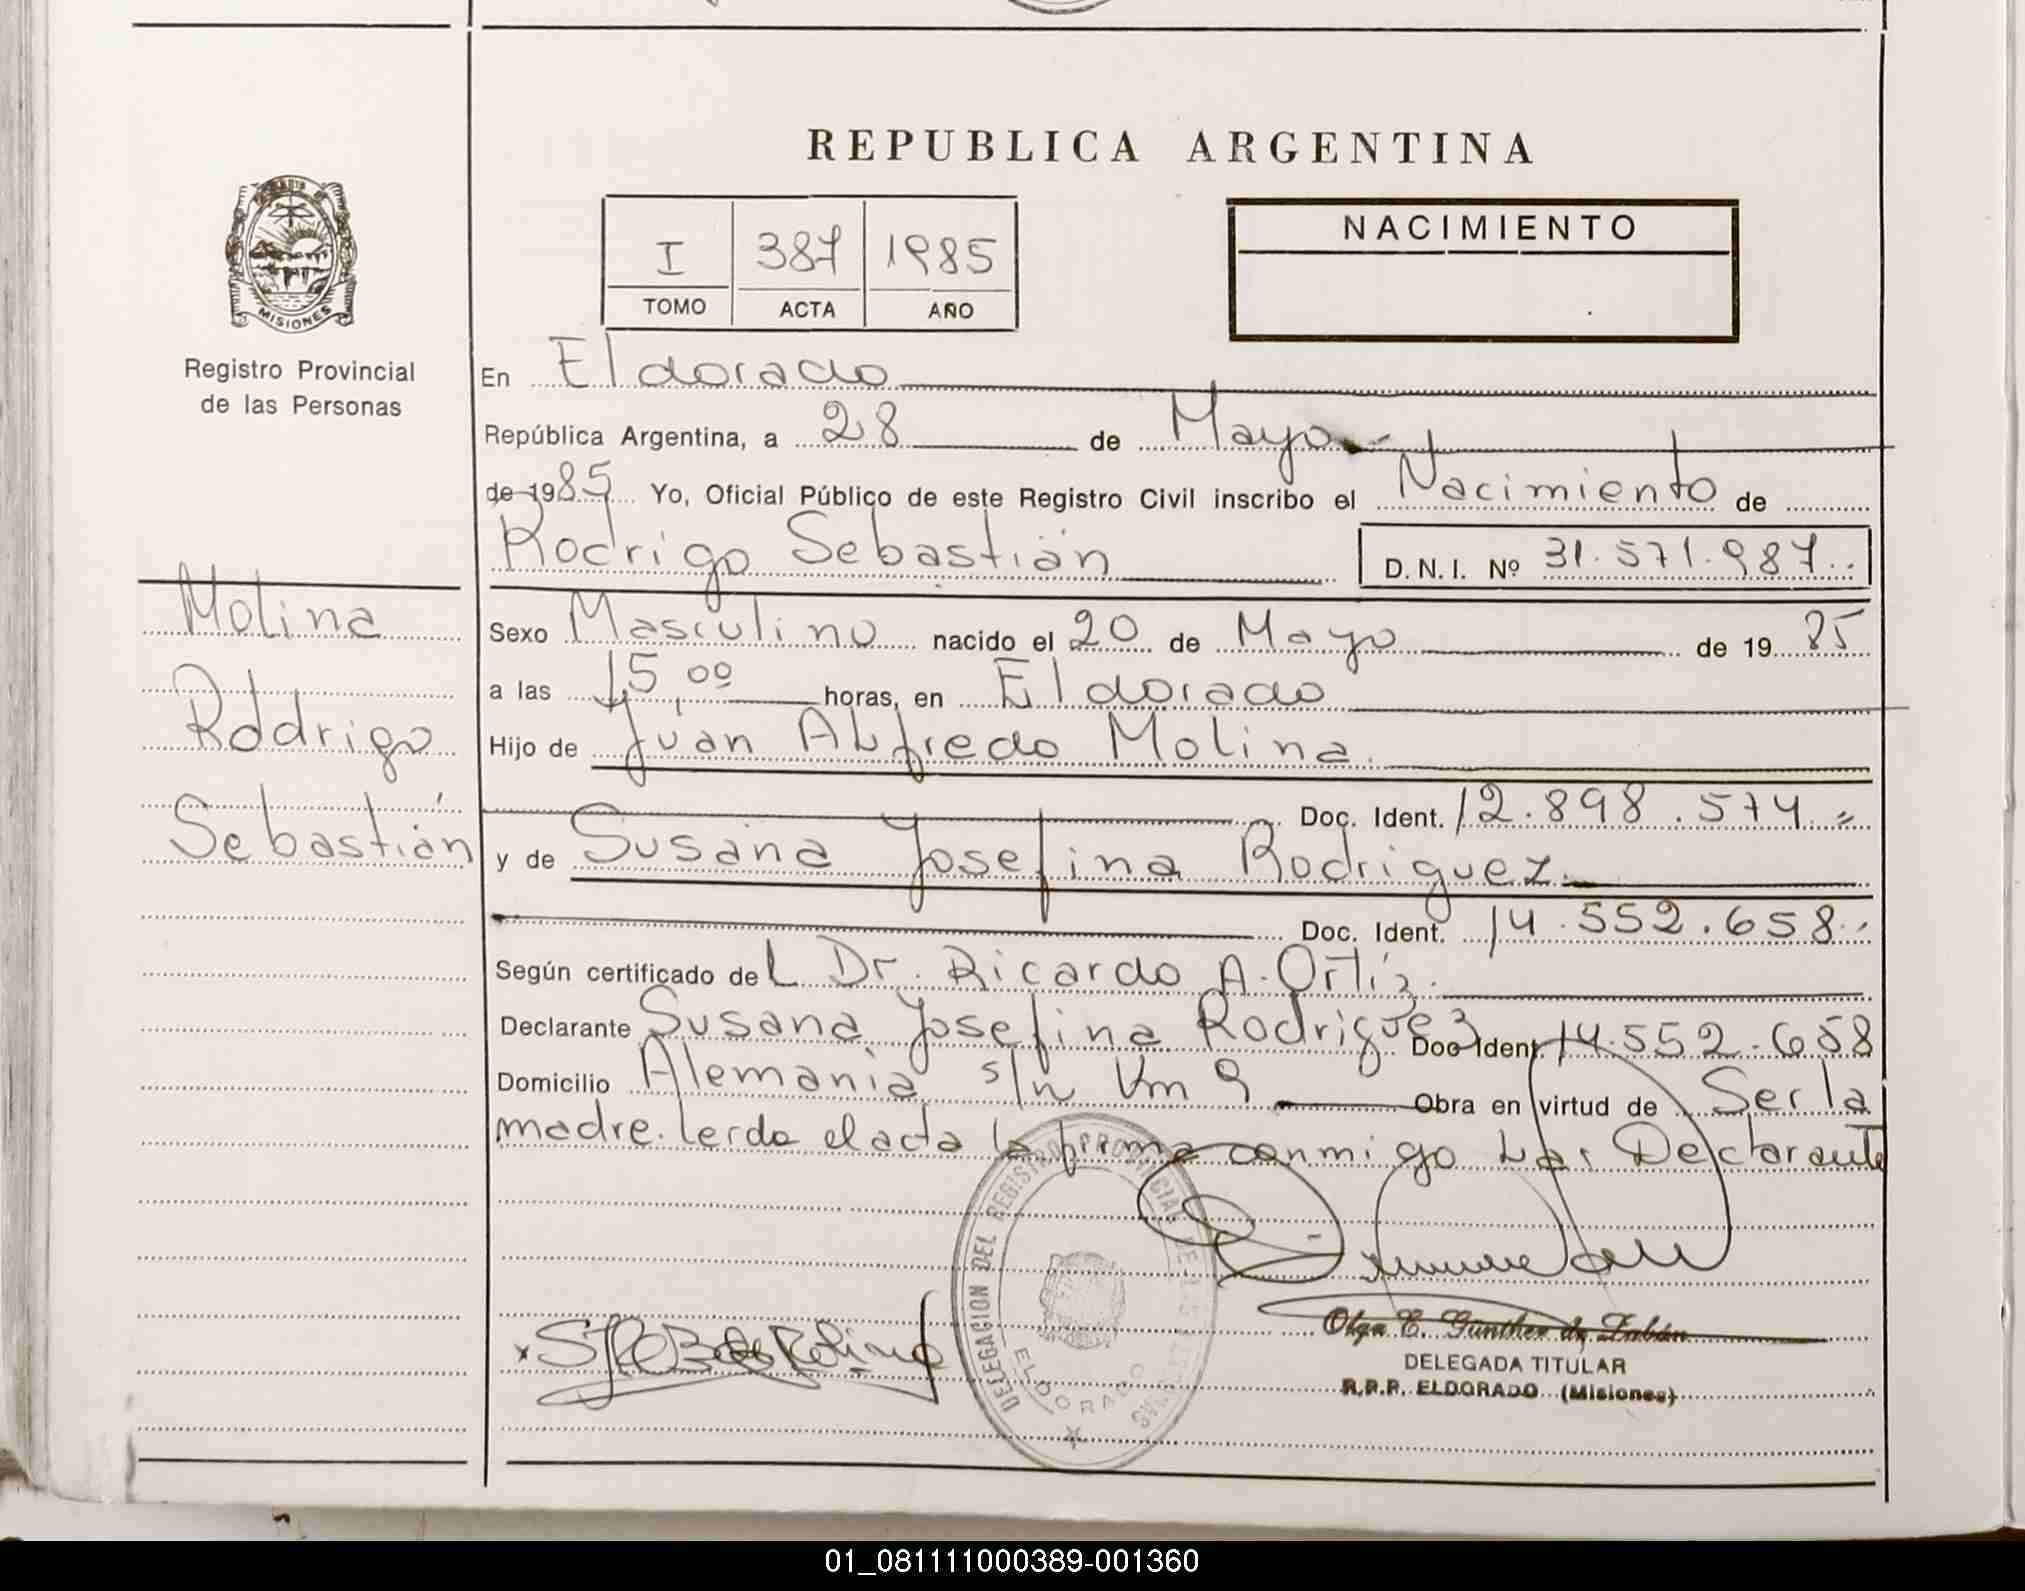 REPUBLICA ARGENTINA
I 387 1985
TOMO ACTA AÑO
NACIMIENTO
MISIONES
Registro Provincial
de las Personas
Molina
Rodrigo
Sebastián
En Eldorado
República Argentina, a 28 de Mayo
de 1985 Yo, Oficial Público de este Registro Civil inscribo el Nacimiento de
Rodrigo Sebastián D.N.I. Nº 31.571.987
Sexo Masculino nacido el 20 de Mayo de 1985
a las 15,00 horas, en Eldorado
Hijo de Juan Alfredo Molina
Doc. Ident. 12.898.574
y de Susana Josefina Rodriguez
Doc. Ident. 14.552.658
Según certificado del Dr. Ricardo A. Ortíz.
Declarante Susana Josefina Rodriguez Doc Ident. 14.552.658
Domicilio Alemania s/n Km 9 Obra en virtud de Ser la
madre. Leida el acta la firma conmigo La Declarante
DELEGACION DEL REGISTRO PROVINCIAL DE LAS PERSONAS
ELDORADO
Olga E. Günther de
DELEGADA TITULAR
R.P.P. ELDORADO (Misiones)
01_081111000389-001360